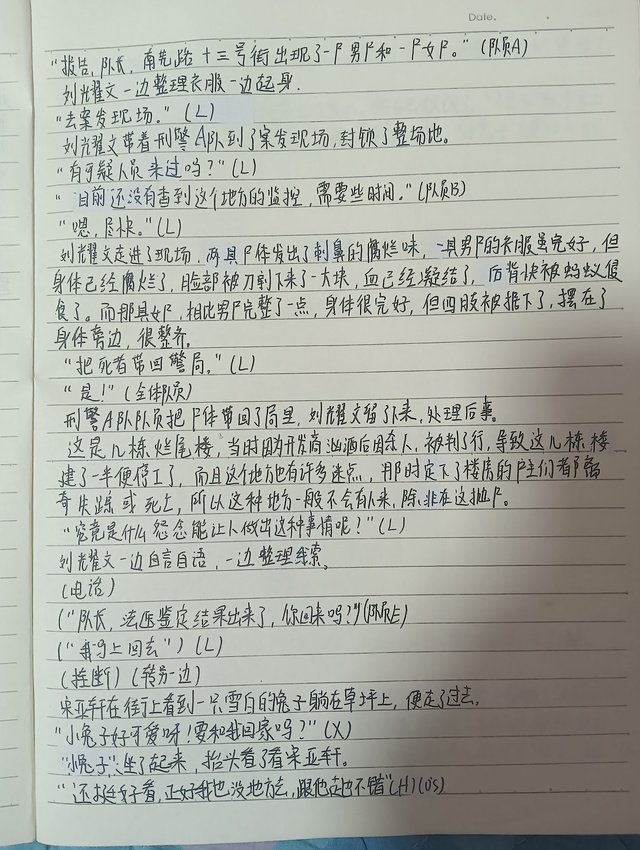 Date.
“报告，队长，南芜路十三号街出现了一尸男尸和一尸女尸。”（队员A）
刘耀文一边整理衣服一边起身.
“去案发现场。”（L）
刘耀文带着刑警A队到了案发现场，封锁了整场地。
“有可疑人员来过吗？”（L）
“目前还没有查到这个地方的监控，需要些时间。”（队员B）
“嗯，尽快。”（L）
刘耀文走进了现场，两具尸体发出了刺鼻的腐烂味，一具男尸的衣服虽完好，但
身体已经腐烂了，脸部被刀割下来了一大块，血已经凝结了，后背快被蚂蚁侵
食了。而那具女尸，相比男尸完整了一点，身体很完好，但四肢被锯下了，摆在了
身体旁边，很整齐。
“把死者带回警局。”（L）
“是！”（全体队员）
刑警A队队员把尸体带回了局里，刘耀文留了下来，处理后事。
这是几栋烂尾楼，当时因为开发商酗酒后因杀人，被判了行，导致这几栋楼
建了一半便停工了，而且这个地方也有许多迷点，那时定下了楼房的户主们都离
奇失踪或死亡，所以这种地方一般不会有人来，除非在这抛尸。
“究竟是什么怨念能让人做出这种事情呢？”（L）
刘耀文一边自言自语，一边整理线索。
（电话）
（“队长，法医鉴定结果出来了，你回来吗？”）（队员E）
（“我马上回去”）（L）
（挂断）（转另一边）
宋亚轩在街上看到一只雪白的兔子躺在草坪上，便走了过去。
“小兔子好可爱呀！要和我回家吗？”（X）
“小兔子”坐了起来，抬头看了看宋亚轩。
“还挺好看，正好我也没地方去，跟他走也不错”（H）（OS）